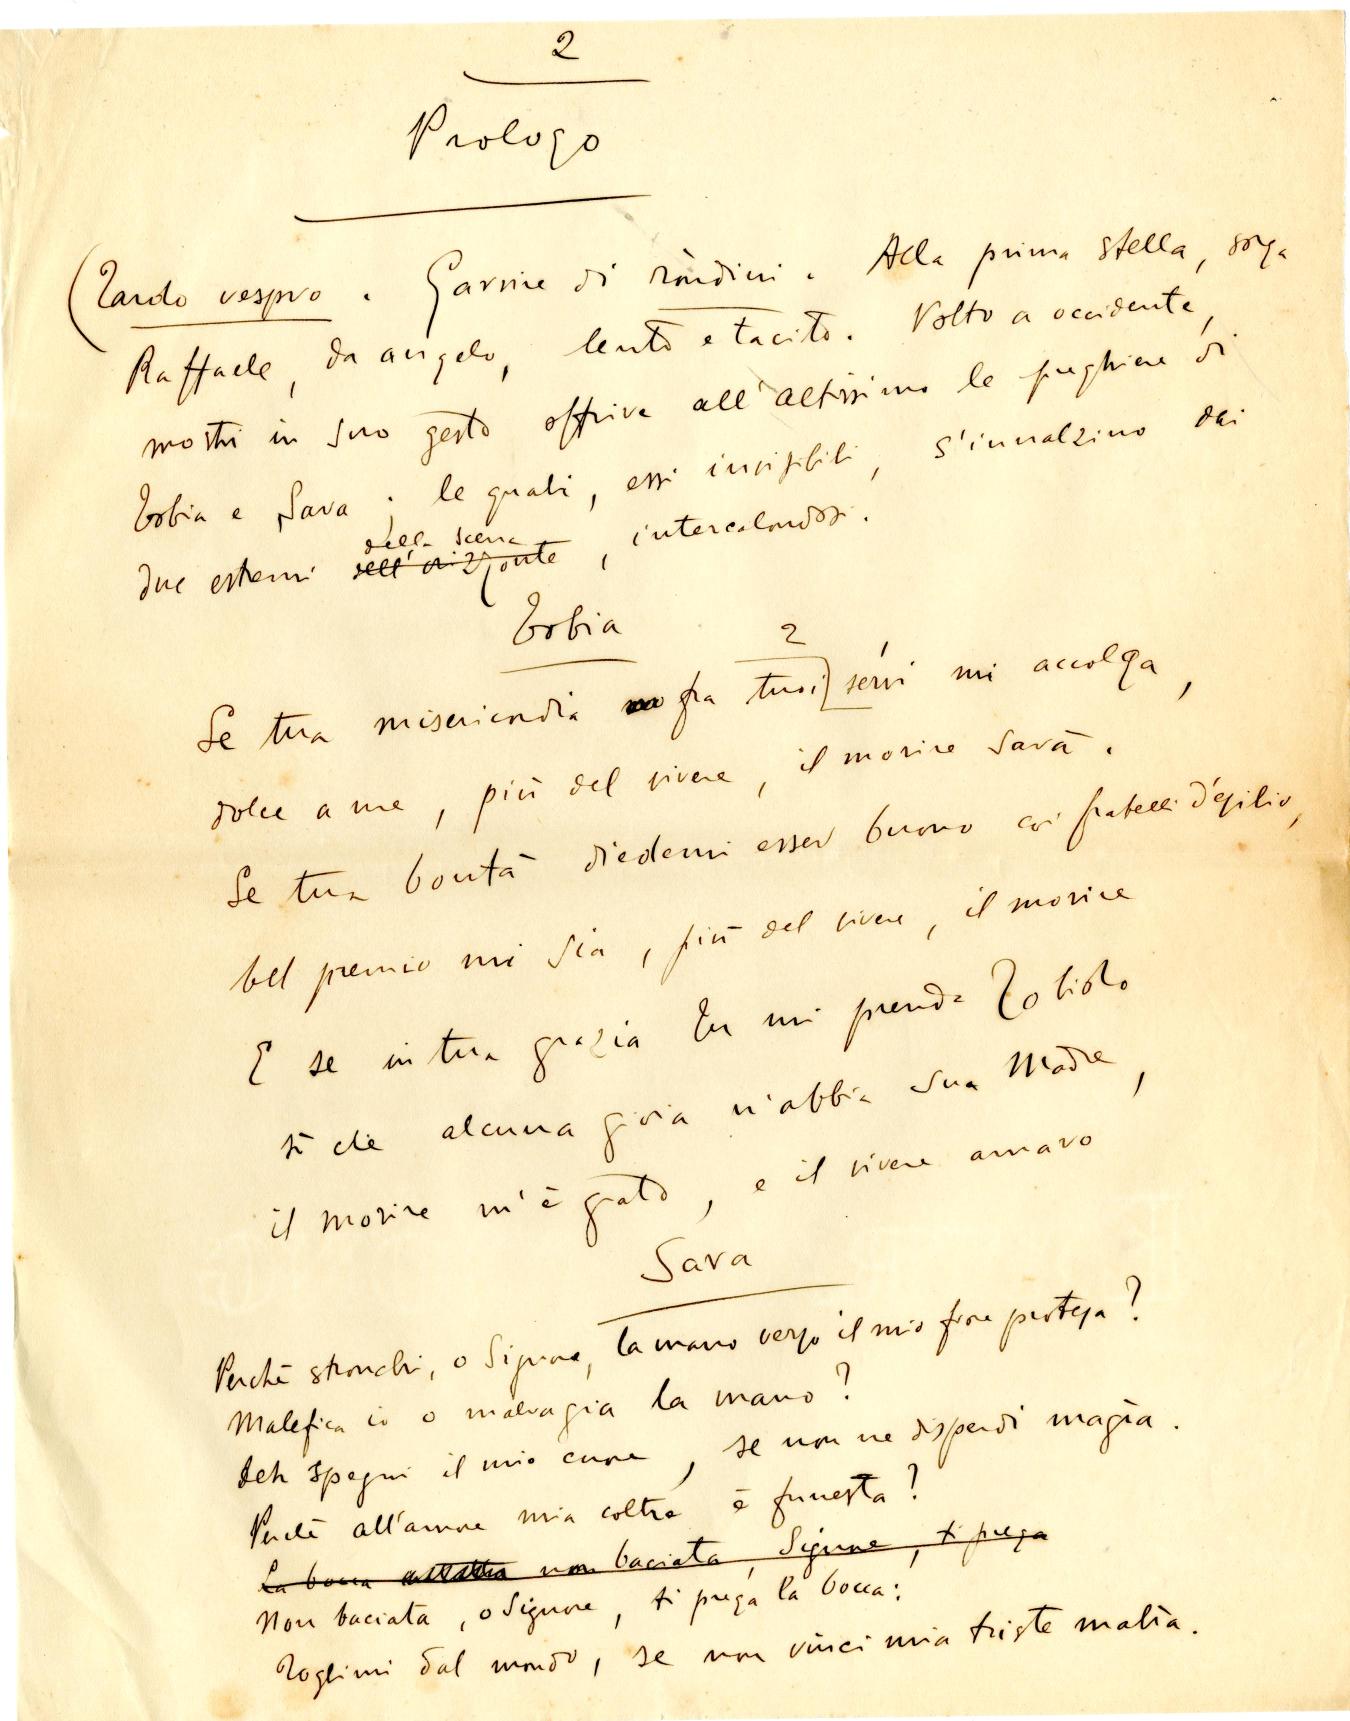 2
Prologo
(Tardo vespro. Garrire di ròndini. Alla prima stella, sorga
Raffaele, da angelo, lento e tacito. Volto a occidente,
mostri in suo gesto offrire all'altissimo le preghiere di
Tobia e Sara; le quali, essi invisibili, s'innalzino dai
della scena
due estremi dell'orizzonte, intercalandosi.
Tobia
2
Se tua misericordia fra tuoi servi mi accolga,
dolce a me, più del vivere, il morire sarà.
Se tua bontà diedemi esser buono coi fratelli d'esilio,
bel premio mi sia, più del vivere, il morire
E se in tua grazia Tu mi prenda Tobiolo
sì che alcuna gioia n'abbia sua Madre,
il morire m'è grato, e il vivere amaro
Sara
Perché stronchi, o Signore, la mano verso il mio fiore protesa?
Malefica io o malvagia la mano?
deh spegni il mio cuore, se non ne disperdi magìa.
Perché all'amore mia coltre è funesta?
La bocca non baciata, Signore, ti prega
Non baciata, o Signore, ti prega la bocca:
Toglimi dal mondo, se non vinci mia triste malìa.